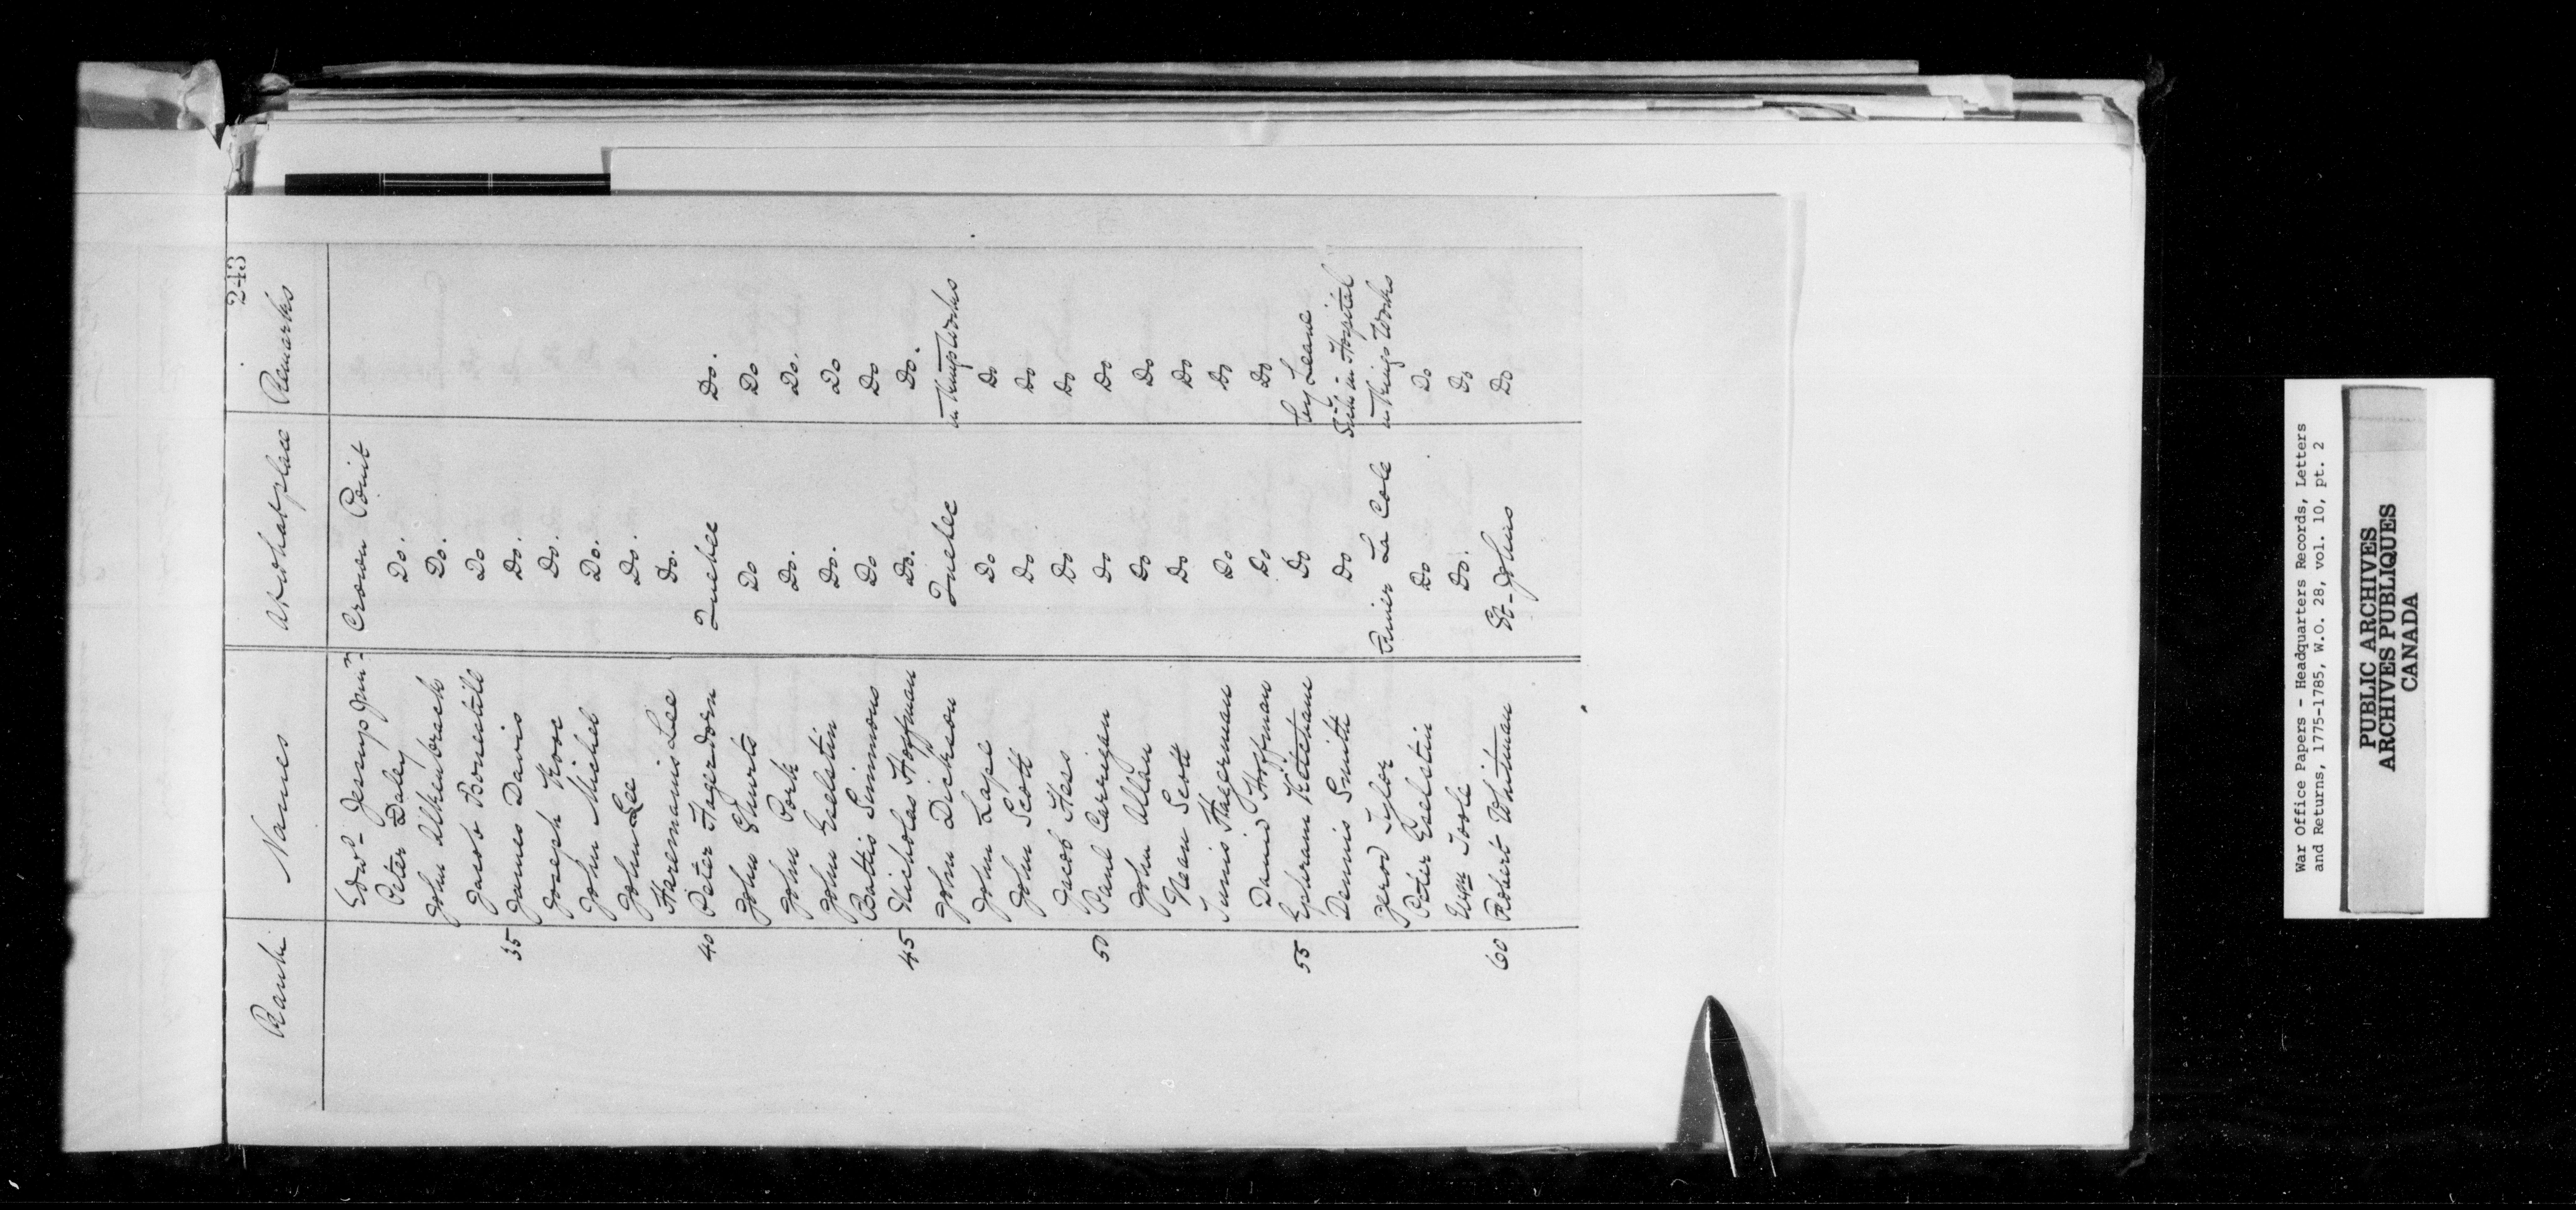 243
Rank Names At what place Remarks
Edwd- Jessup Junr Crown Point
Peter Daley Do.
John Alkenbrach Do.
Jacob Bonestile Do
35 James Davis Do.
Joseph Do.
John Michel Do.
John Lee Do.
Haremanis Lee Do.
40 Peter Hagerdorn Quebec Do.
John Shurts Do Do
John Pork Do. Do.
John Eselstin Do. Do
Battis Simmons Do Do
45 Nicholas Hoffman Do. Do.
John Dickson Quebec in Kings Works
John Lape Do Do
John Scott Do Do
Jacob Hess Do Do
50 Paul Carrigan Do Do
John Allan Do Do
Nean Scott Do Do
Tunis Hagerman Do Do
David Hoffman Do Do
55 Ephraim Ketcham Do
Dennis Smith Do Sick in Hospital
Jerod Tylor River La Cole in Kings Works
Peter Eselstin Do Do
Wm Toole Do. Do
60 Robert Whitman St-Johns Do
War Office Papers - Headquarters Records, Letters
and Returns, 1775-1785, W.O. 28, vol. 10, pt. 2
PUBLIC ARCHIVES
ARCHIVES PUBLIQUES
CANADA